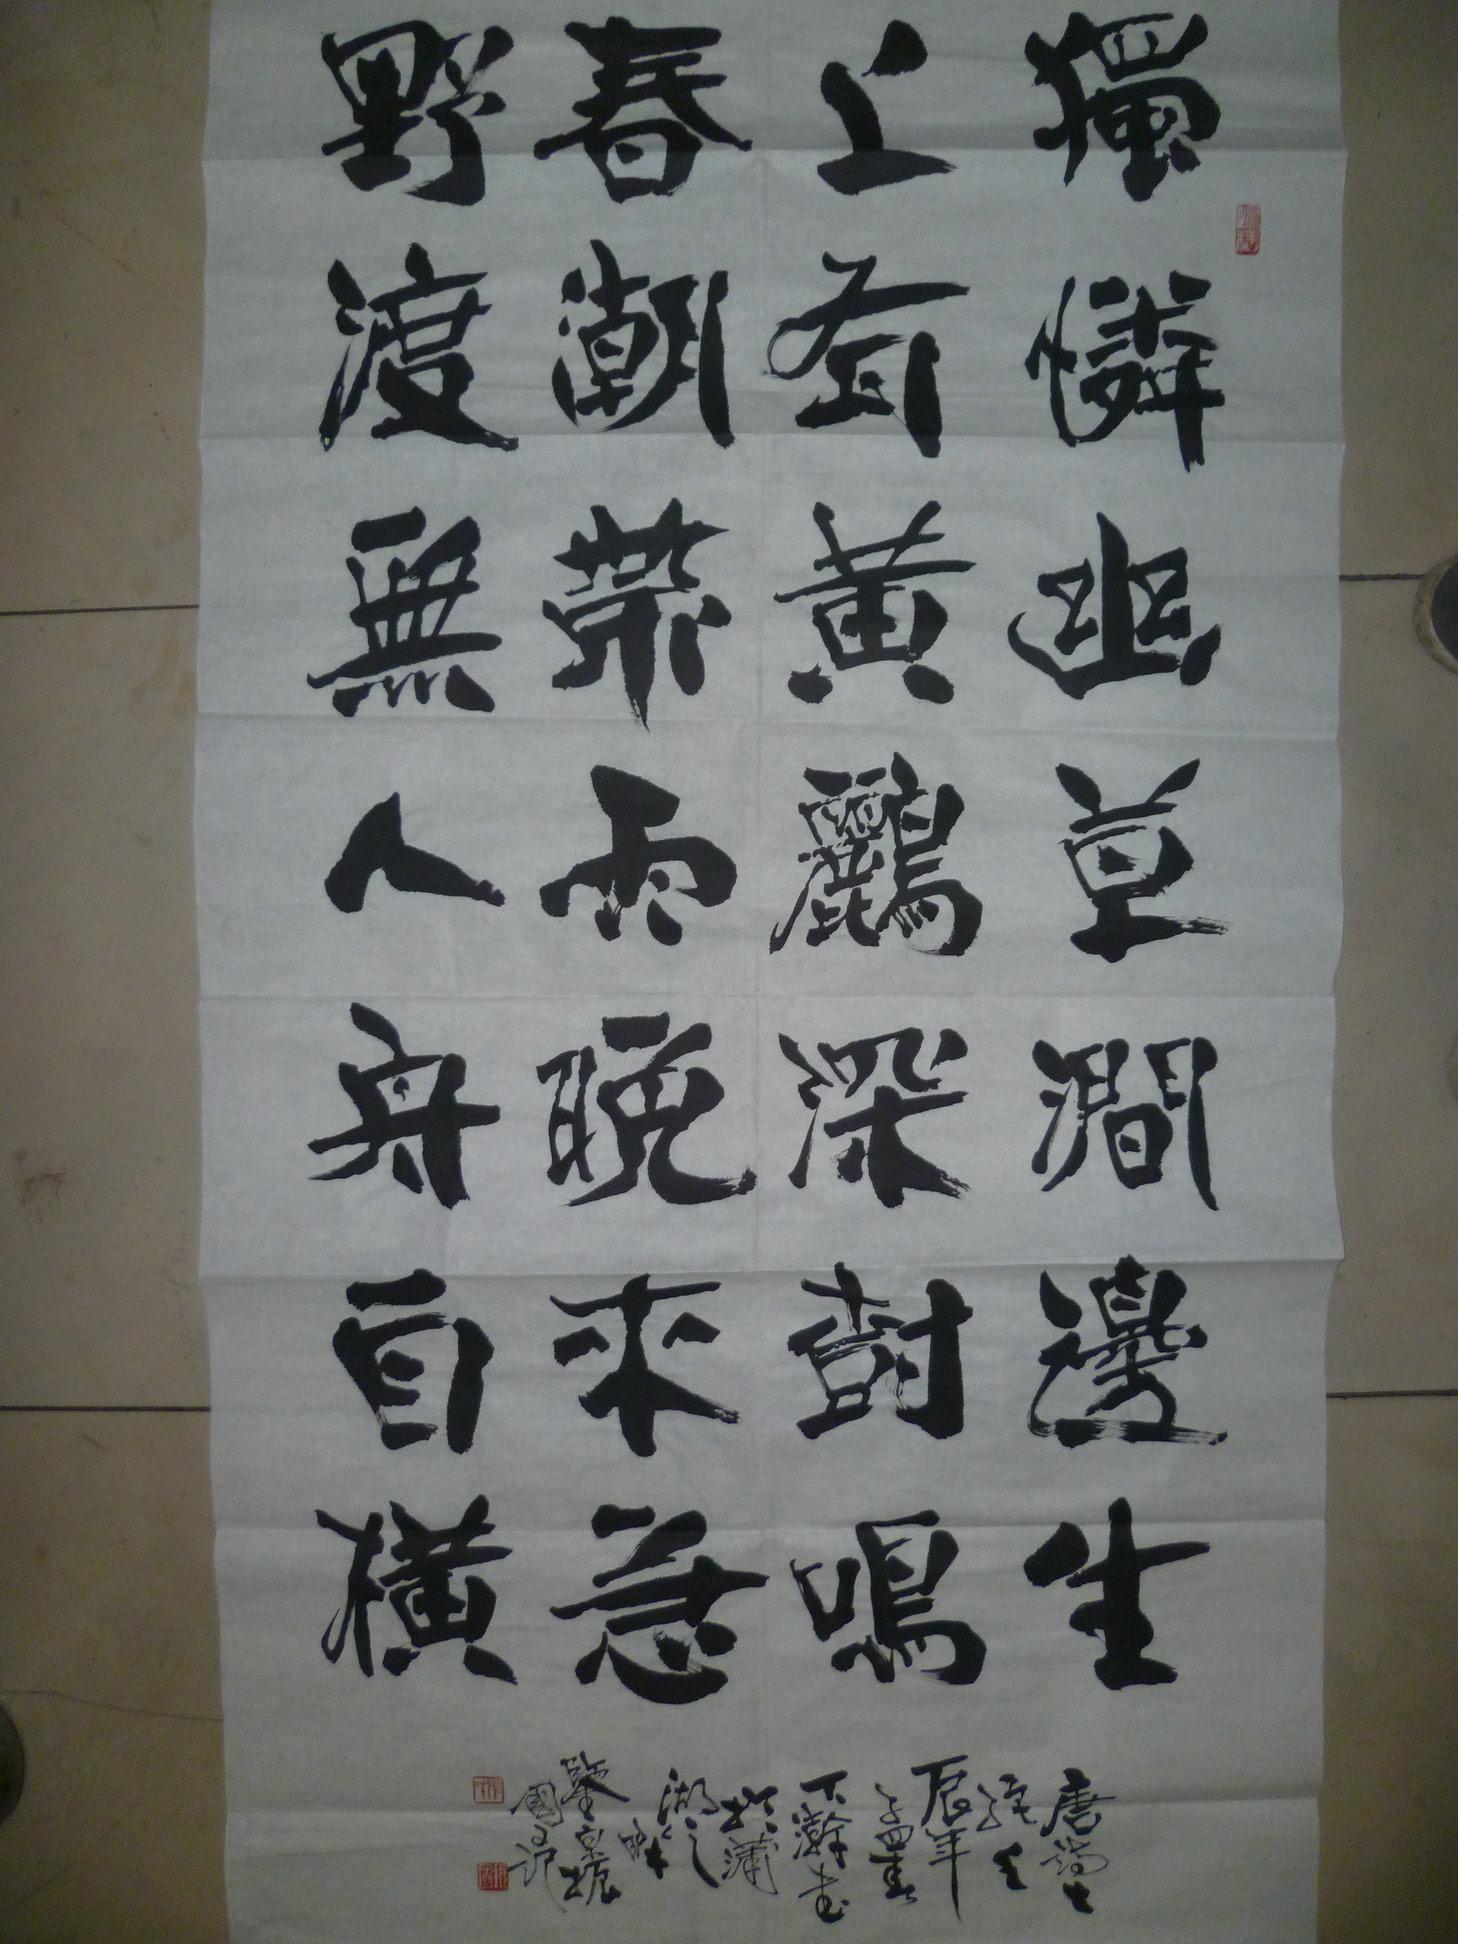 獨憐幽草澗邊生
上有黃鸝深樹鳴
春潮帶雨晚來急
野渡無人舟自橫
唐詩七
絕壬
辰年
孟春
瀚
瀟
湖